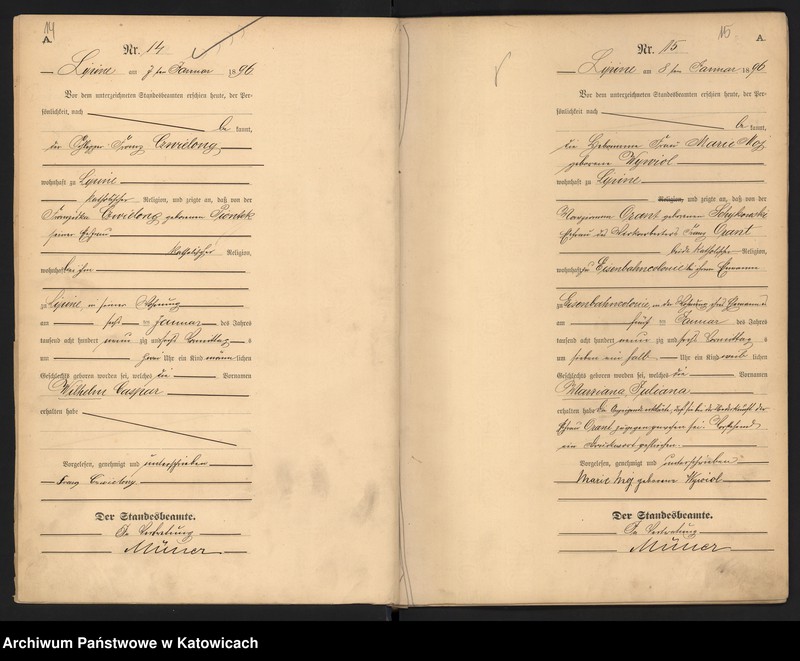 14
A.
Nr. 14
Lyssine am 7 ten Januar 1896
Vor dem unterzeichneten Standesbeamten erschien heute, der Per-
sönlichkeit nach
be kannt,
der Franz Cwielong
wohnhaft zu
katholischer Religion, und zeigte an, daß von der
Franziska Cwielong geborenen Piontek
seiner Ehefrau
katholischer Religion,
wohnhaft bei ihm
zu in seiner Wohnung
am sechsten Januar des Jahres
tausend acht hundert neun zig und sechs Vormittags
um zwei Uhr ein Kind männ lichen
Geschlechts geboren worden sei, welches die Vornamen
Wilhelm Caspar
erhalten habe
Vorgelesen, genehmigt und unterschrieben
Franz Cwielong
Der Standesbeamte.
In Vertretung
15
A.
Nr. 15
am 8 ten Januar 1896
Vor dem unterzeichneten Standesbeamten erschien heute, der Per-
sönlichkeit nach
be kannt,
die Hebamme Frau Marie Moj
geborene Wywiol
wohnhaft zu
Religion, und zeigte an, daß von der
geborenen
Ehefrau des Franz
beide katholischer Religion,
wohnhaft zu Eisenbahncolonie bei ihrem Ehemann
zu Eisenbahncolonie in der Wohnung ihres Ehemannes
am Januar des Jahres
tausend acht hundert neun zig und sechs Vormittags
um sieben ein halb Uhr ein Kind weib lichen
Geschlechts geboren worden sei, welches die Vornamen
Marianna Juliana
erhalten habe. Die Anzeigende erklärte, daß sie bei der Niederkunft der
zugegen gewesen sei. Vorstehend
ein Druckwort gestrichen.
Vorgelesen, genehmigt und unterschrieben
Marie Moj geborene Wywiol
Der Standesbeamte.
In Vertretung
Archiwum Państwowe w Katowicach